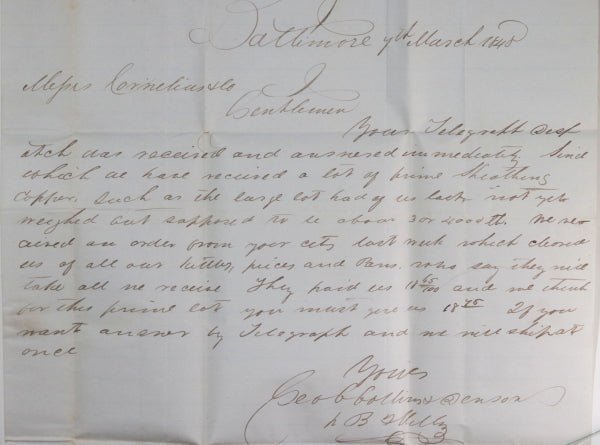 Baltimore 7th March 1848
Messrs Cornelius & Co
Gentlemen
Your Telegraph Desp
atch was received and answered immediately Sind
which we have received a lot of prime Sheathing
Copper. Such as the large lot had of us last not yet
weighed but supposed to be about 3 or 4000 lb. We rec
aived an order from your city last week which cleand
us of all our kettles, pieces and Pans. who say they will
take all we receive They paid us 18 65/100 and we think
for this prime lot you must give us 18 75 If you
want answer by Telegraph and we will ship at
once
Yours
Geo Collins & Denson
B